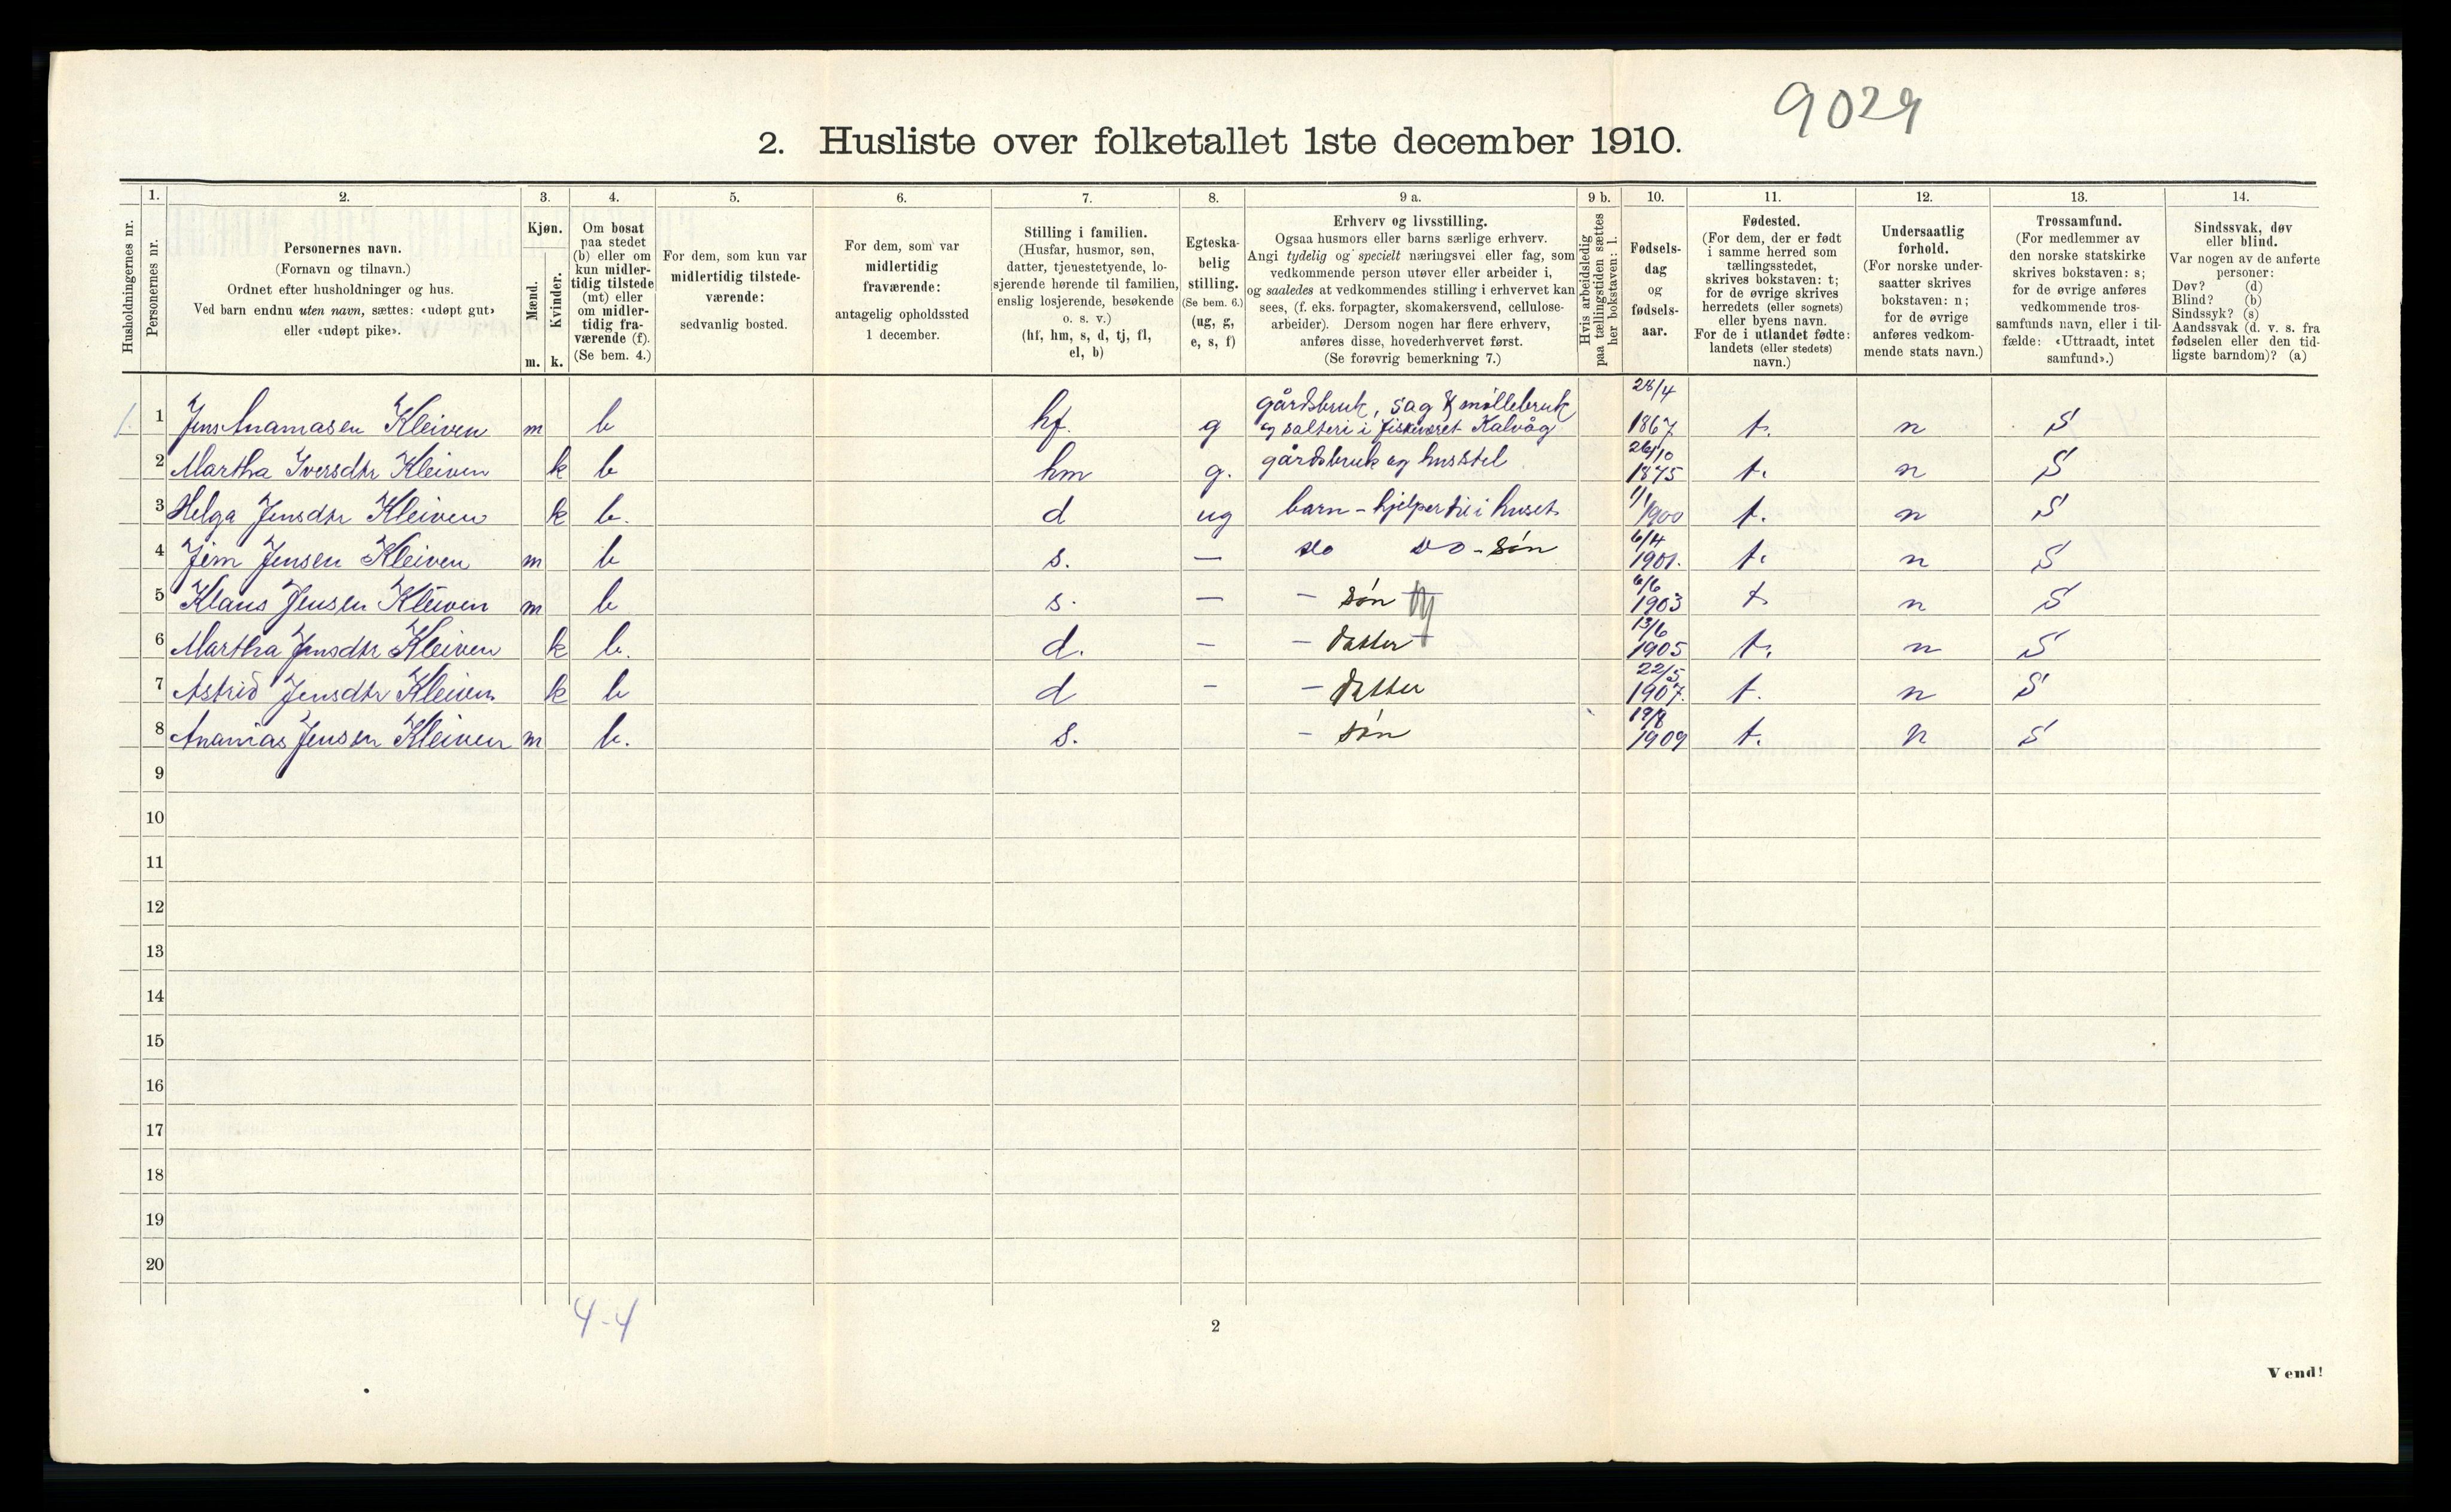 9029
2. Husliste over folketallet 1ste december 1910.
Husholdningernes nr.
1.
Personernes nr.
2.
Personernes navn.
(Fornavn og tilnavn.)
Ordnet efter husholdninger og hus.
Ved barn endnu uten navn, sættes: «udøpt gut»
eller «udøpt pike».
3.
Kjøn.
Mænd.
Kvinder.
m. k.
4.
Om bosat
paa stedet
(b) eller om
kun midler-
tidig tilstede
(mt) eller
om midler-
tidig fra-
værende (f).
(Se bem. 4.)
5.
For dem, som kun var
midlertidig tilstede-
værende:
sedvanlig bosted.
6.
For dem, som var
midlertidig
fraværende:
antagelig opholdssted
1 december.
7.
Stilling i familien.
(Husfar, husmor, søn,
datter, tjenestetyende, lo-
sjerende hørende til familien,
enslig losjerende, besøkende
o. s. v.)
(hf, hm, s, d, tj, fl,
el, b)
8.
Egteska-
belig
stilling.
(Se bem. 6.)
(ug, g,
e, s, f)
9 a.
Erhverv og livsstilling.
Ogsaa husmors eller barns særlige erhverv.
Angi tydelig og specielt næringsvei eller fag, som
vedkommende person utøver eller arbeider i,
og saaledes at vedkommendes stilling i erhvervet kan
sees, (f. eks. forpagter, skomakersvend, cellulose-
arbeider). Dersom nogen har flere erhverv,
anføres disse, hovederhvervet først.
(Se forøvrig bemerkning 7.)
9 b.
Hvis arbeidsledig
paa tællingstiden sættes
her bokstaven: l.
10.
Fødsels-
dag
og
fødsels-
aar.
11.
Fødested.
(For dem, der er født
i samme herred som
tællingsstedet,
skrives bokstaven: t;
for de øvrige skrives
herredets (eller sognets)
eller byens navn.
For de i utlandet fødte:
landets (eller stedets)
navn.)
12.
Undersaatlig
forhold.
(For norske under-
saatter skrives
bokstaven: n;
for de øvrige
anføres vedkom-
mende stats navn.)
13.
Trossamfund.
(For medlemmer av
den norske statskirke
skrives bokstaven: s;
for de øvrige anføres
vedkommende tros-
samfunds navn, eller i til-
fælde: «Uttraadt, intet
samfund».)
14.
Sindssvak, døv
eller blind.
Var nogen av de anførte
personer:
Døv? (d)
Blind? (b)
Sindssyk? (s)
Aandssvak (d. v. s. fra
fødselen eller den tid-
ligste barndom)? (a)
1. 1 Jens Ananiasen Kleiven m b hf. g gårdsbruk, sag & møllebruk og salteri i fiskeværet Kalvåg 28/4 1867 t. n S
2 Martha Iversdtr Kleiven k b hm g. gårdsbruk og husstel 26/10 1875 t. n S
3 Helga Jensdtr Kleiven k b. d ug barn - hjelper til i huset 1/1 1900 t. n S
4 Jem Jensen Kleiven m b s. — do do - søn 6/4 1901. t. n S
5 Klaus Jensen Kleiven m b s. — - søn 6/6 1903 t. n S
6 Martha Jensdtr Kleiven k b. d. - - datter 13/6 1905 t. n S
7 Astrid Jensdtr Kleiven k b d - - datter 22/5 1907. t. n S
8 Ananias Jensen Kleiven m b. s. - søn 19/8 1909 t. n S
9
10
11
12
13
14
15
16
17
18
19
20
4-4
2
Vend!